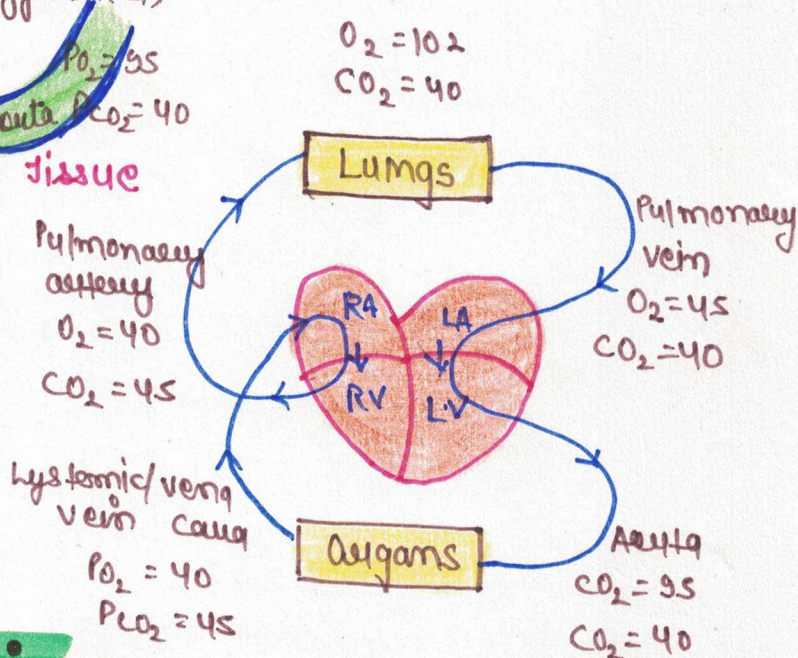 PO₂ = 95
PCO₂ = 40
Tissue
O₂ = 102
CO₂ = 40
Lungs
Pulmonary
vein
O₂ = 45
CO₂ = 40
Pulmonary
artery
O₂ = 40
CO₂ = 45
RA
LA
RV
L.V
Systemic/vena
vein cava
PO₂ = 40
PCO₂ = 45
Organs
Aorta
CO₂ = 95
CO₂ = 40